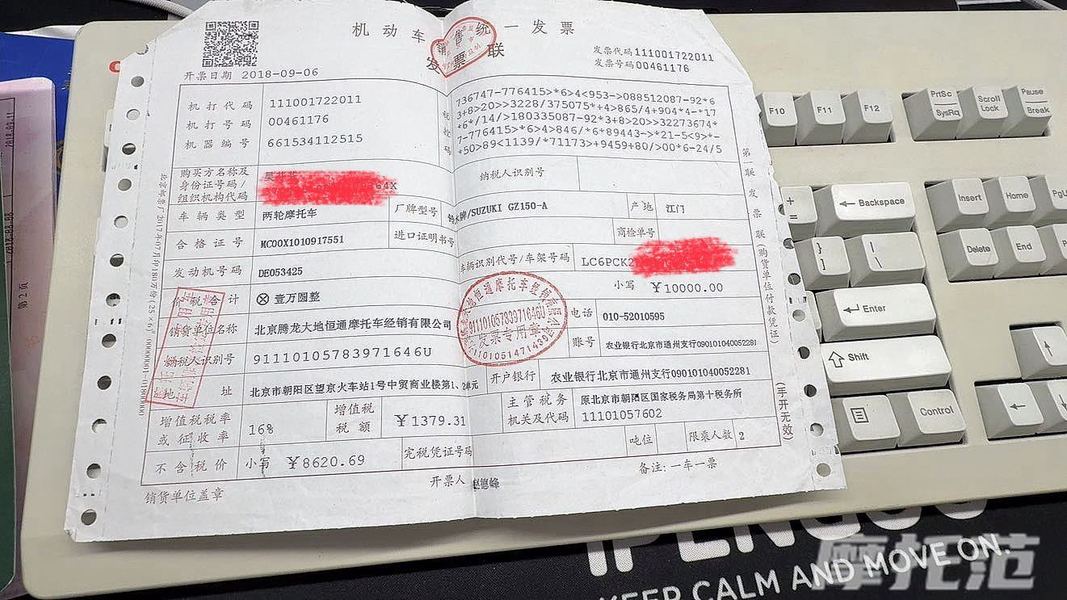 机动车销售统一发票
发票联
发票代码 111001722011
发票号码 00461176
开票日期 2018-09-06
机打代码 111001722011
机打号码 00461176
机器编号 661534112515
税控码
736747-776415>*6>4<953->088512087-92*6
3+8>20>>3228/375075*+4>865/4+904*-*17
*6*/14/>180335087-92*3+8>20>>32273674
7-776415>*6>4>846/*6*89443->*21-5<9>*-
*50>89<1139/*71173>+9459+80/>00*6-24/5
购买方名称及
身份证号码/
组织机构代码
64X
纳税人识别号
车辆类型 两轮摩托车
厂牌型号 铃木牌/SUZUKI GZ150-A
产地 江门
合格证号 MC00X1010917551
进口证明书号
商检单号
发动机号码 DE053425
车辆识别代号/车架号码 LC6PCK2
价税合计 ⊗壹万圆整
小写 ¥10000.00
销货单位名称 北京腾龙大地恒通摩托车经销有限公司
电话 010-52010595
纳税人识别号 91110105783971646U
账号 农业银行北京市通州支行090101040052281
地址 北京市朝阳区望京火车站1号中贸商业楼第1、2单元
开户银行 农业银行北京市通州支行090101040052281
增值税税率
或征收率 16%
增值税
税额 ¥1379.31
主管税务
机关及代码
原北京市朝阳区国家税务局第十税务所
11101057602
不含税价 小写 ¥8620.69
完税凭证号码
吨位
限乘人数 2
销货单位盖章
开票人 赵德峰
备注:一车一票
第一联 发票联(购货单位付款凭证)
(手开无效)
91110105783971646U
发票专用章
第2页
F10
F11
F12
PrtSc
SysRq
Scroll
Lock
Pause
Break
+
=
Backspace
Insert
Home
PgU
}
]
|
\
Delete
End
Enter
Shift
Control
KEEP CALM AND MOVE ON.
摩托范